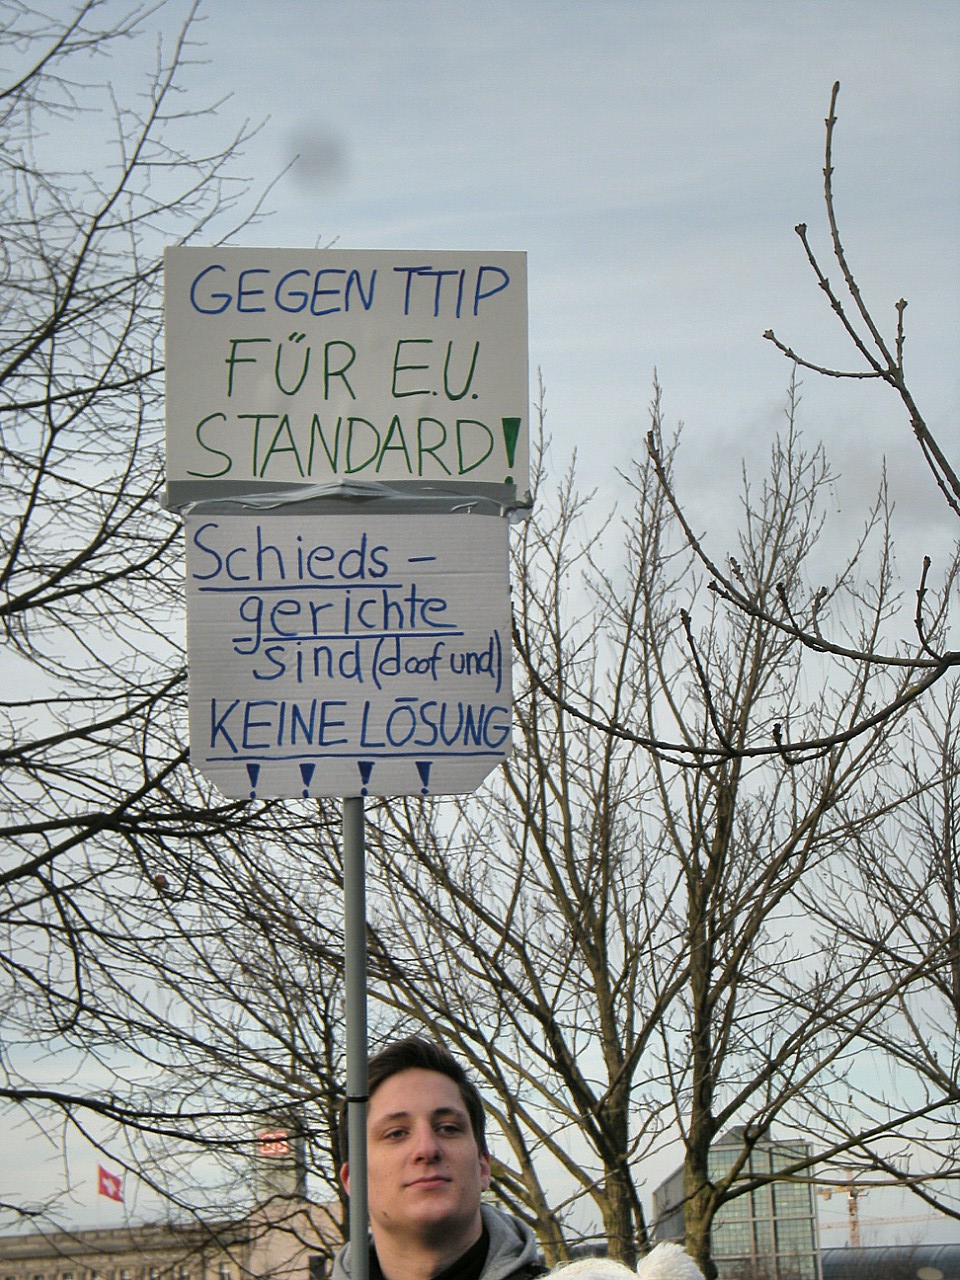 GEGEN TTIP
FÜR E.U.
STANDARD!
Schieds-
gerichte
sind (doof und)
KEINE LÖSUNG
! ! ! !